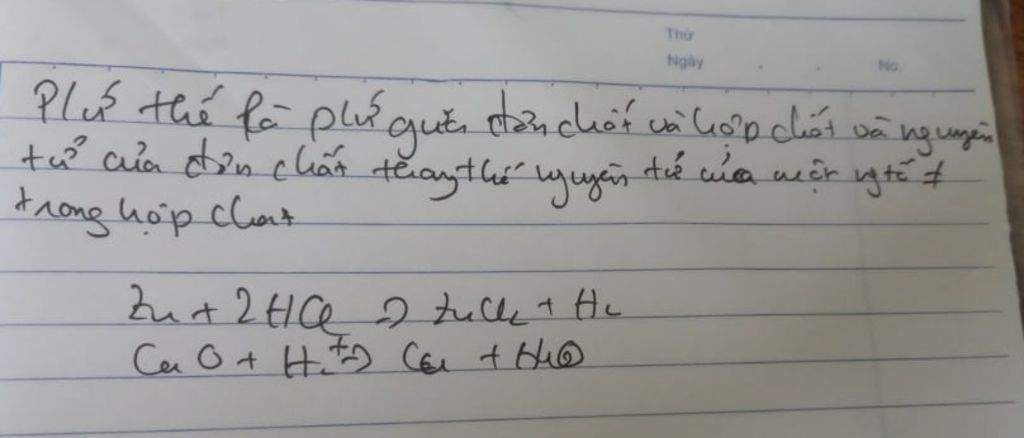 Thứ
Ngày No
P/ứ thế là p/ứ giữa đơn chất và hợp chất và nguyên
tử của đơn chất thay thế nguyên tử của một ngtố ≠
trong hợp chất
Zn + 2HCl => ZnCl2 + H2
CuO + H2 => Cu + H2O